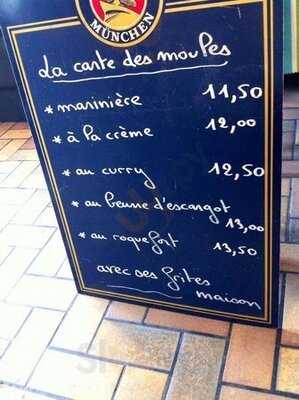 MÜNCHEN
La carte des moules
* marinière 11,50
* à la crème 12,00
* au curry 12,50
* au beurre d'escargot 13,00
* au roquefort 13,50
avec ses frites
maison